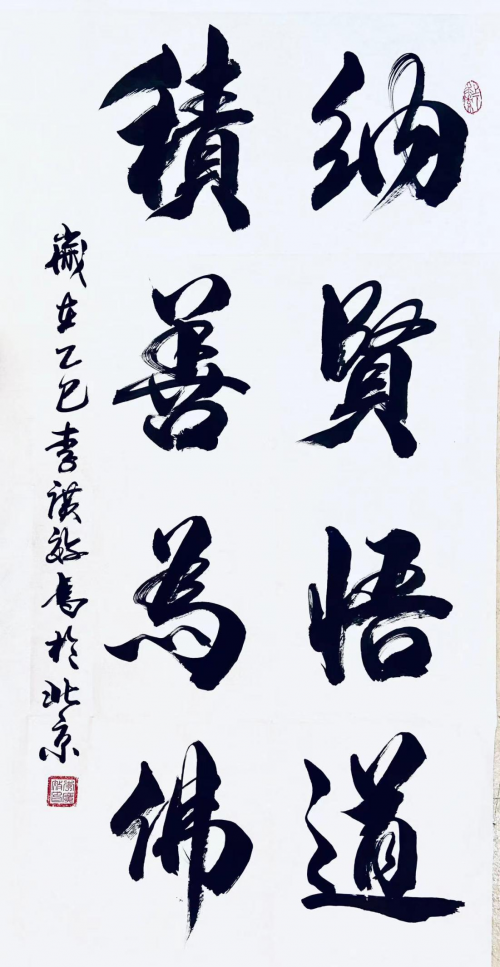 納賢悟道
積善為佛
歲在乙巳李洪敬書於北京